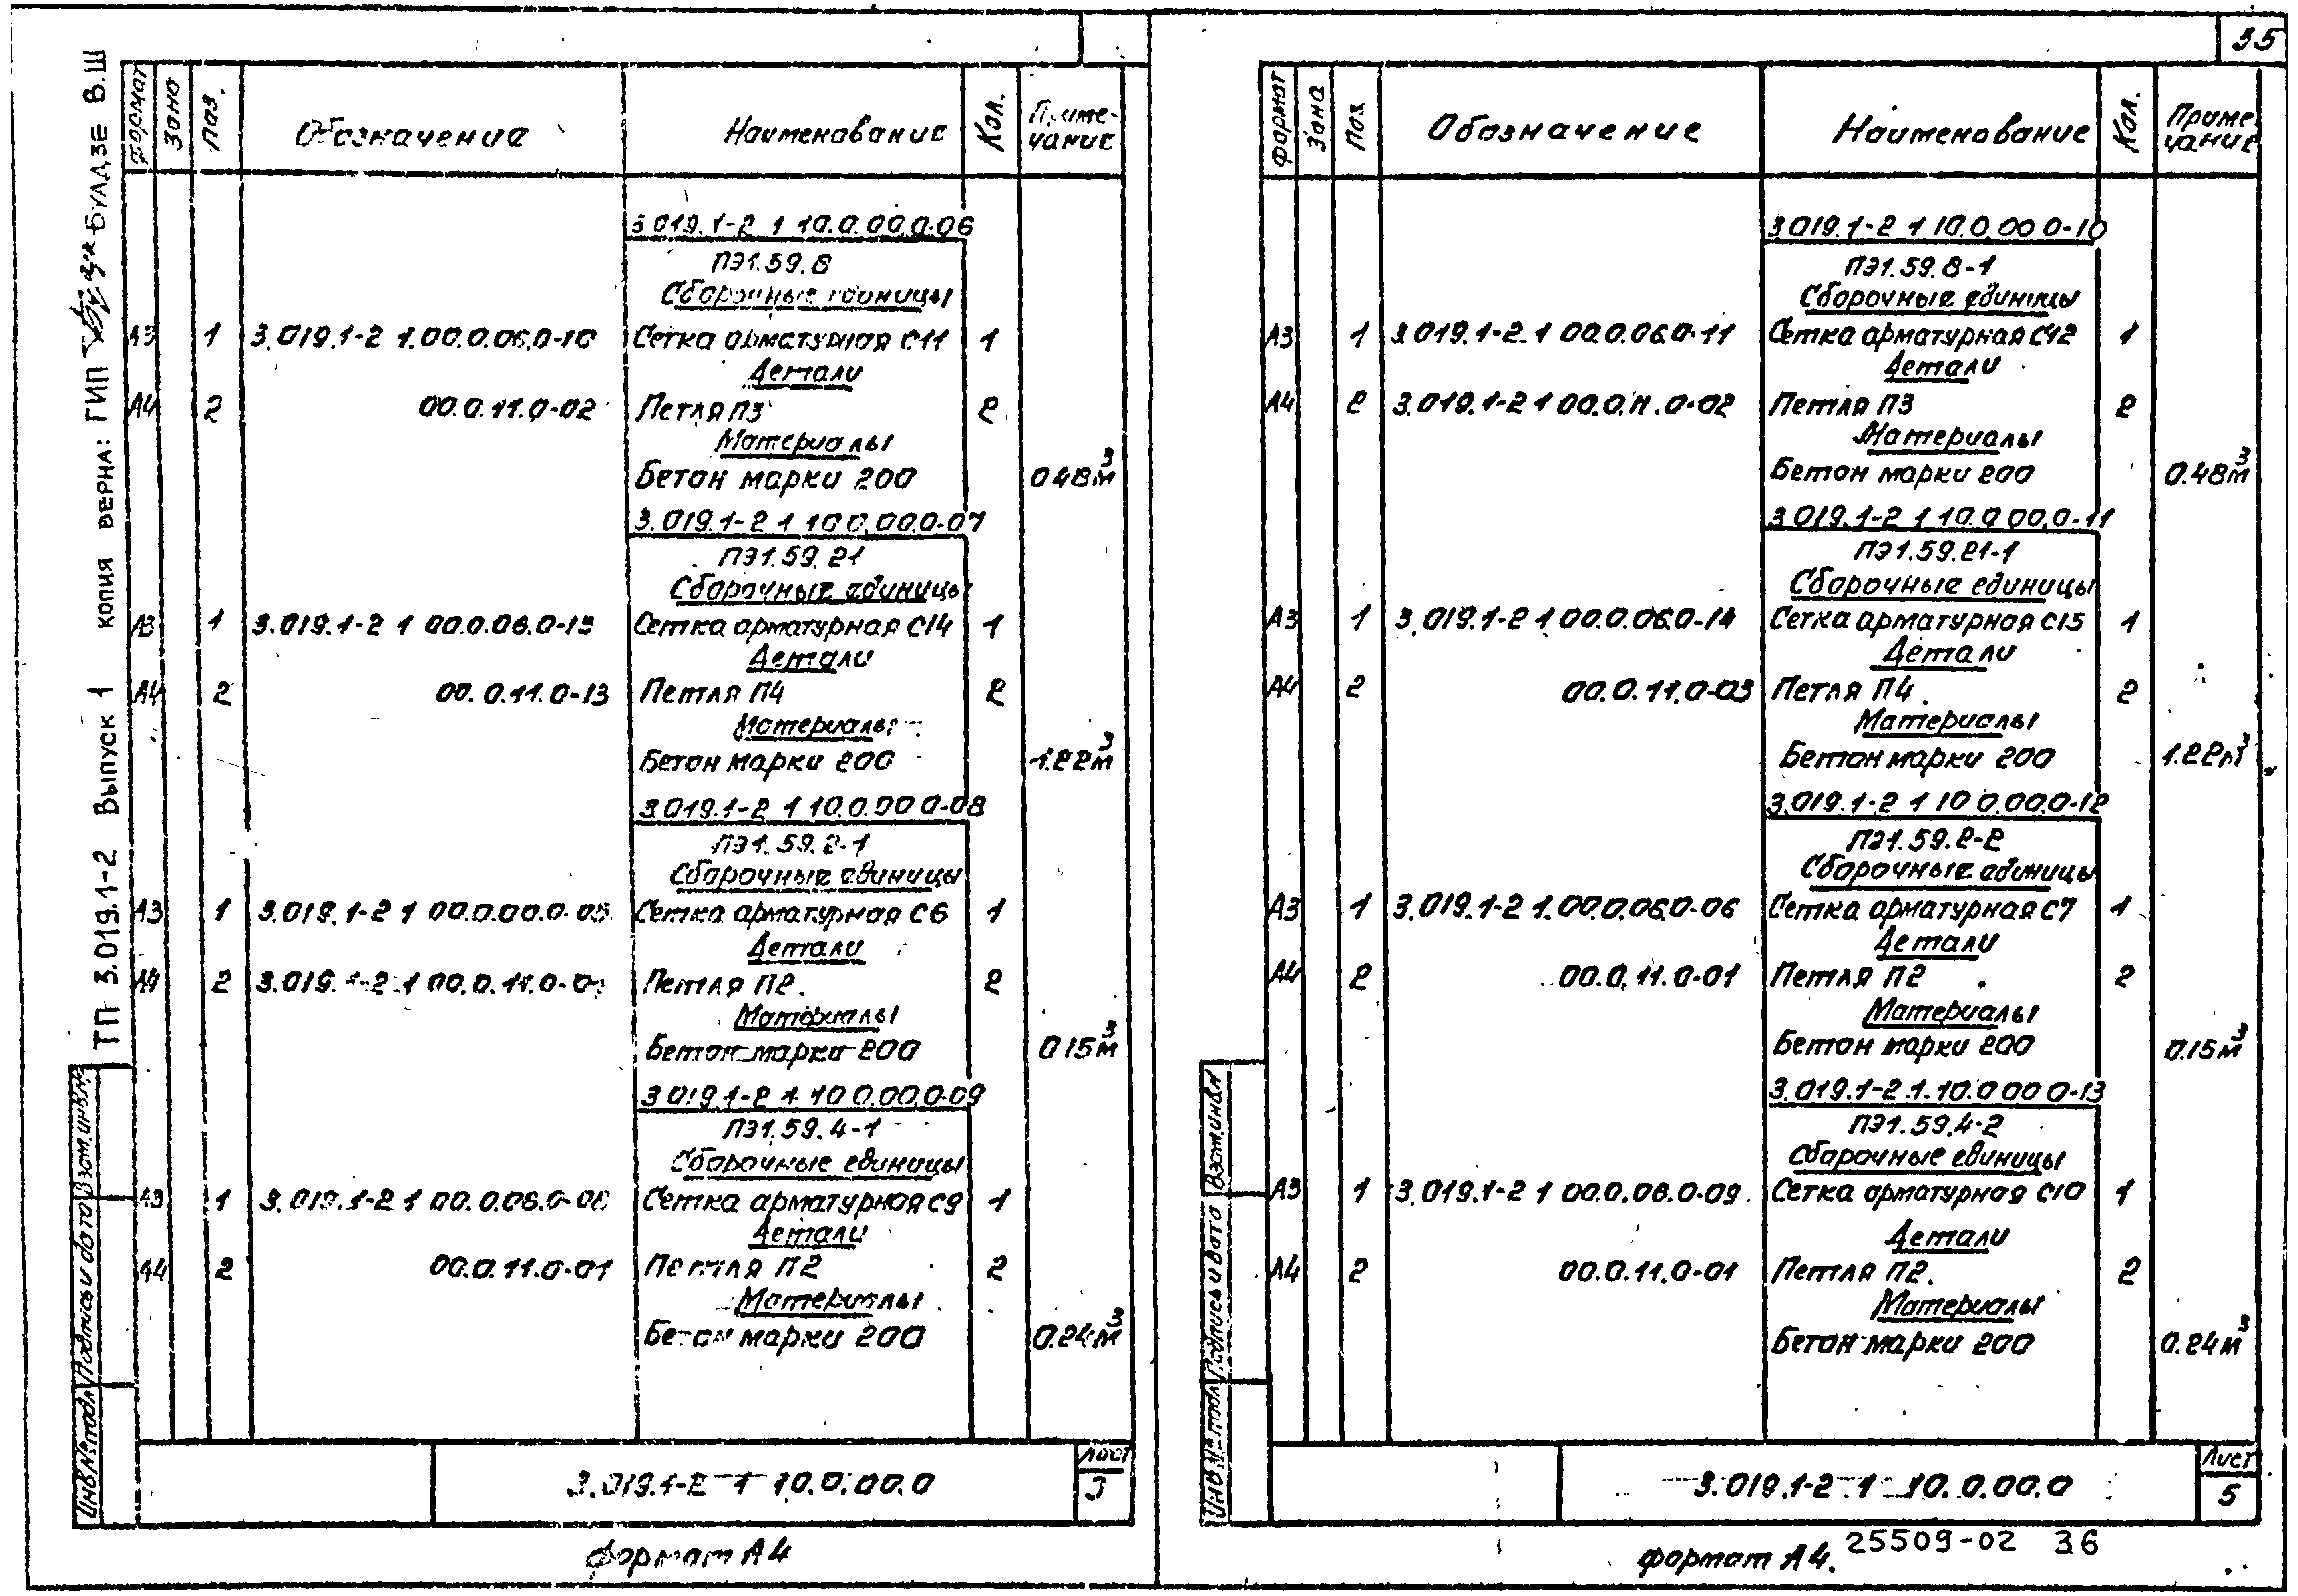 35
ТП 3.019.1-2 Выпуск 1 копия верна: ГИП БУАДЗЕ В.Ш
Формат Зона Поз. Обозначение Наименование Кол. Приме-
чание
3.019.1-2 1 10.0.00.0-06
ПЭ1.59.8
Сборочные единицы
А3 1 3.019.1-2 1.00.0.06.0-10 Сетка арматурная С11 1
Детали
А4 2 00.0.11.0-02 Петля П3 2
Материалы
Бетон марки 200 0.48м³
3.019.1-2 1 10.0.00.0-07
ПЭ1.59.21
Сборочные единицы
А3 1 3.019.1-2 1 00.0.06.0-13 Сетка арматурная С14 1
Детали
А4 2 00.0.11.0-13 Петля П4 2
Материалы
Бетон марки 200 1.22м³
3.019.1-2 1 10.0.00.0-08
ПЭ1.59.2-1
Сборочные единицы
А3 1 3.019.1-2 1 00.0.00.0-05 Сетка арматурная С6 1
Детали
А4 2 3.019.1-2 1 00.0.11.0-01 Петля П2. 2
Материалы
Бетон марки 200 0.15м³
3.019.1-2 1 10.0.00.0-09
ПЭ1.59.4-1
Сборочные единицы
А3 1 3.019.1-2 1 00.0.06.0-08 Сетка арматурная С9 1
Детали
А4 2 00.0.11.0-01 Петля П2 2
Материалы
Бетон марки 200 0.24м³
Инв.№ подл. Подпись и дата Взам.инв.№
3.019.1-2 1 10.0.00.0
Лист
3
формат А4
Формат Зона Поз. Обозначение Наименование Кол. Приме
чание
3.019.1-2 1 10.0.00.0-10
ПЭ1.59.8-1
Сборочные единицы
А3 1 3.019.1-2 1 00.0.06.0-11 Сетка арматурная С12 1
Детали
А4 2 3.019.1-2 1 00.0.11.0-02 Петля П3 2
Материалы
Бетон марки 200 0.48м³
3.019.1-2 1 10.0.00.0-11
ПЭ1.59.21-1
Сборочные единицы
А3 1 3.019.1-2 1 00.0.06.0-14 Сетка арматурная С15 1
Детали
А4 2 00.0.11.0-03 Петля П4 2
Материалы
Бетон марки 200 1.22м³
3.019.1-2 1 10.0.00.0-12
ПЭ1.59.2-2
Сборочные единицы
А3 1 3.019.1-2 1.00.0.06.0-06 Сетка арматурная С7 1
Детали
А4 2 00.0.11.0-01 Петля П2 2
Материалы
Бетон марки 200 0.15м³
3.019.1-2 1.10.0.00.0-13
ПЭ1.59.4-2
Сборочные единицы
А3 1 3.019.1-2 1 00.0.06.0-09 Сетка арматурная С10 1
Детали
А4 2 00.0.11.0-01 Петля П2. 2
Материалы
Бетон марки 200 0.24м³
Инв.№ подл. Подпись и дата Взам.инв.№
3.019.1-2 1 10.0.00.0
Лист
5
формат А4.
25509-02 36